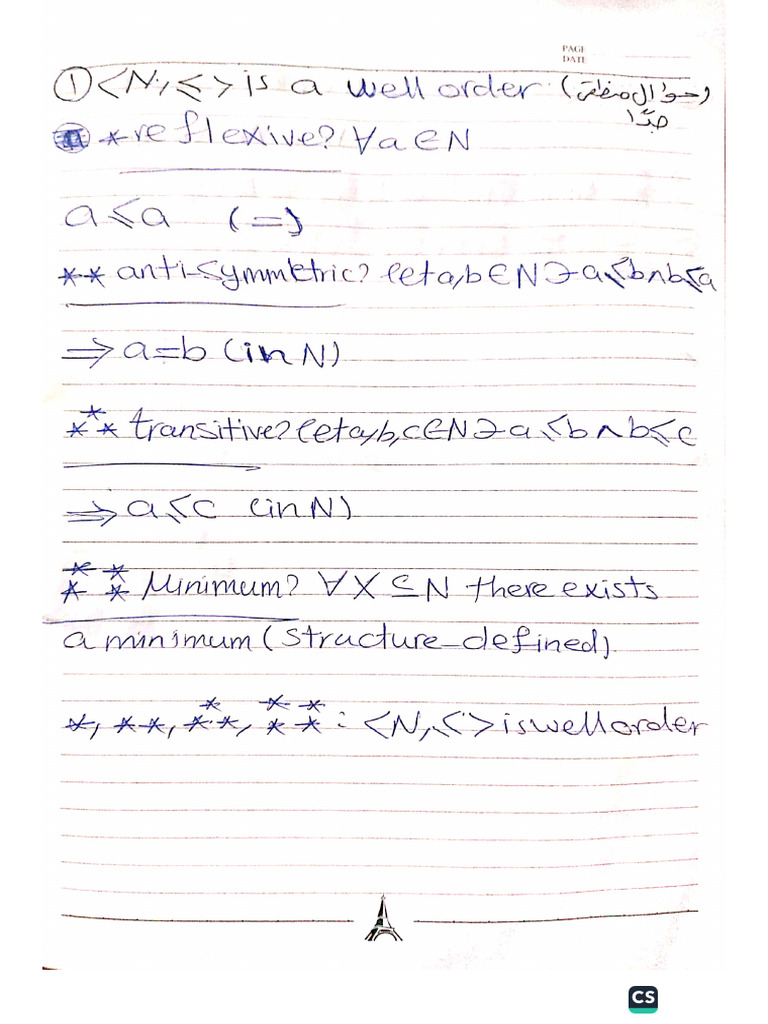 PAGE
DATE
① <N, ≤> is a well order (سؤال منطقي
جدًا)
* reflexive? ∀a∈N
a ≤ a (=)
** anti-symmetric? let a,b∈N ∋ a≤b ∧ b≤a
⇒ a=b (in N)
*** transitive? let a,b,c∈N ∋ a≤b ∧ b≤c
⇒ a≤c (in N)
**** Minimum? ∀X⊆N there exists
a minimum (structure-defined).
*, **, ***, **** : <N,≤> is well order
CS